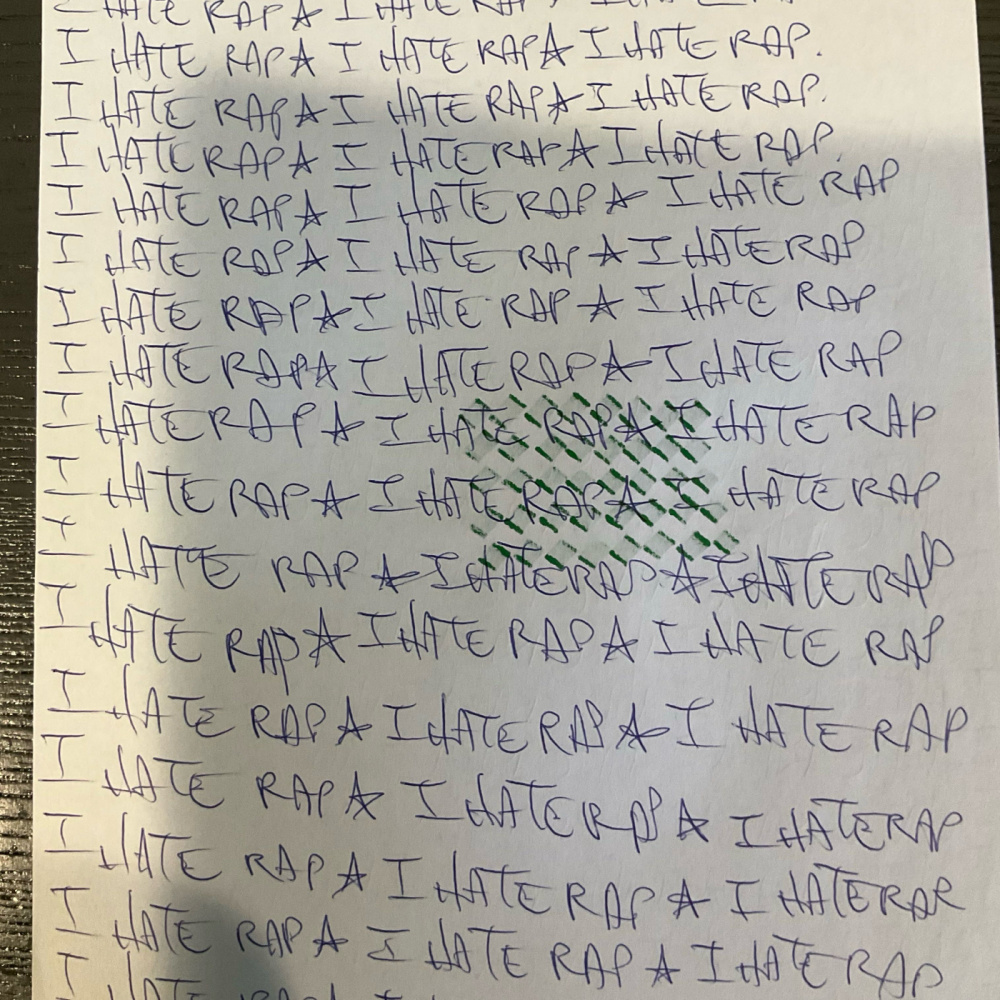 HATE RAP ☆ I HATE RAP ☆ I HATE RAP
I HATE RAP ☆ I HATE RAP ☆ I HATE RAP.
I HATE RAP ☆ I HATE RAP ☆ I HATE RAP.
I HATE RAP ☆ I HATE RAP ☆ I HATE RAP.
I HATE RAP ☆ I HATE RAP ☆ I HATE RAP
I HATE RAP ☆ I HATE RAP ☆ I HATE RAP
I HATE RAP ☆ I HATE RAP ☆ I HATE RAP
I HATE RAP ☆ I HATE RAP ☆ I HATE RAP
I HATE RAP ☆ I HATE RAP ☆ I HATE RAP
I HATE RAP ☆ I HATE RAP ☆ I HATE RAP
I HATE RAP ☆ I HATE RAP ☆ I HATE RAP
I HATE RAP ☆ I HATE RAP ☆ I HATE RAP
I HATE RAP ☆ I HATE RAP ☆ I HATE RAP
I HATE RAP ☆ I HATE RAP ☆ I HATE RAP
I HATE RAP ☆ I HATE RAP ☆ I HATE RAR
I HATE RAP ☆ I HATE RAP ☆ I HATE RAP
I HATE RAP